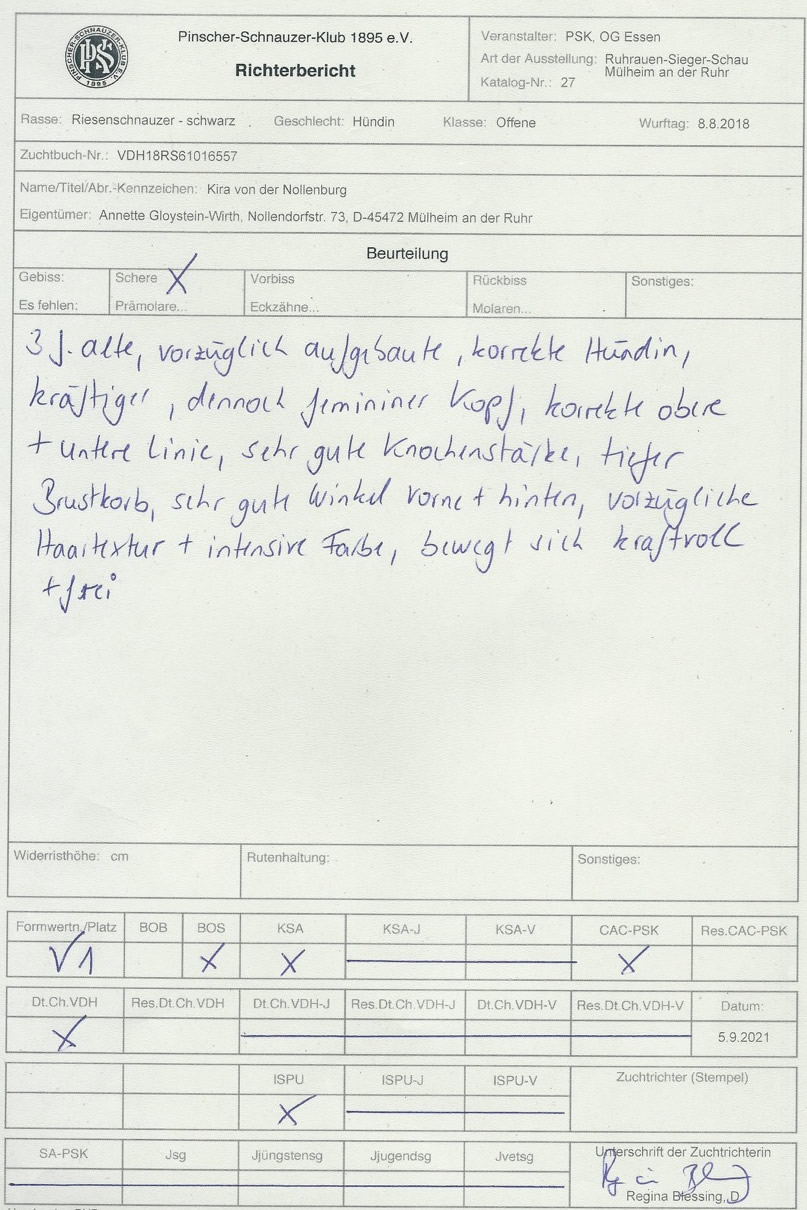 PINSCHER-SCHNAUZER-KLUB E.V.
PSK
1895
Pinscher-Schnauzer-Klub 1895 e.V.
Richterbericht
Veranstalter: PSK, OG Essen
Art der Ausstellung: Ruhrauen-Sieger-Schau
Mülheim an der Ruhr
Katalog-Nr.: 27
Rasse: Riesenschnauzer - schwarz Geschlecht: Hündin Klasse: Offene Wurftag: 8.8.2018
Zuchtbuch-Nr.: VDH18RS61016557
Name/Titel/Abr.-Kennzeichen: Kira von der Nollenburg
Eigentümer: Annette Gloystein-Wirth, Nollendorfstr. 73, D-45472 Mülheim an der Ruhr
Beurteilung
Gebiss: Schere X Vorbiss Rückbiss Sonstiges:
Es fehlen: Prämolare... Eckzähne... Molaren...
3 J. alte, vorzüglich aufgebaute, korrekte Hündin,
kräftiger, dennoch femininer Kopf, korrekte obere
+ untere Linie, sehr gute Knochenstärke, tiefer
Brustkorb, sehr gute Winkel vorne + hinten, vorzügliche
Haartextur + intensive Farbe, bewegt sich kraftvoll
+ frei
Widerristhöhe: cm Rutenhaltung: Sonstiges:
Formwertn./Platz BOB BOS KSA KSA-J KSA-V CAC-PSK Res.CAC-PSK
V1 X X X
Dt.Ch.VDH Res.Dt.Ch.VDH Dt.Ch.VDH-J Res.Dt.Ch.VDH-J Dt.Ch.VDH-V Res.Dt.Ch.VDH-V Datum:
X 5.9.2021
ISPU ISPU-J ISPU-V Zuchtrichter (Stempel)
X
SA-PSK Jsg Jjüngstensg Jjugendsg Jvetsg Unterschrift der Zuchtrichterin
Regina Blessing, D